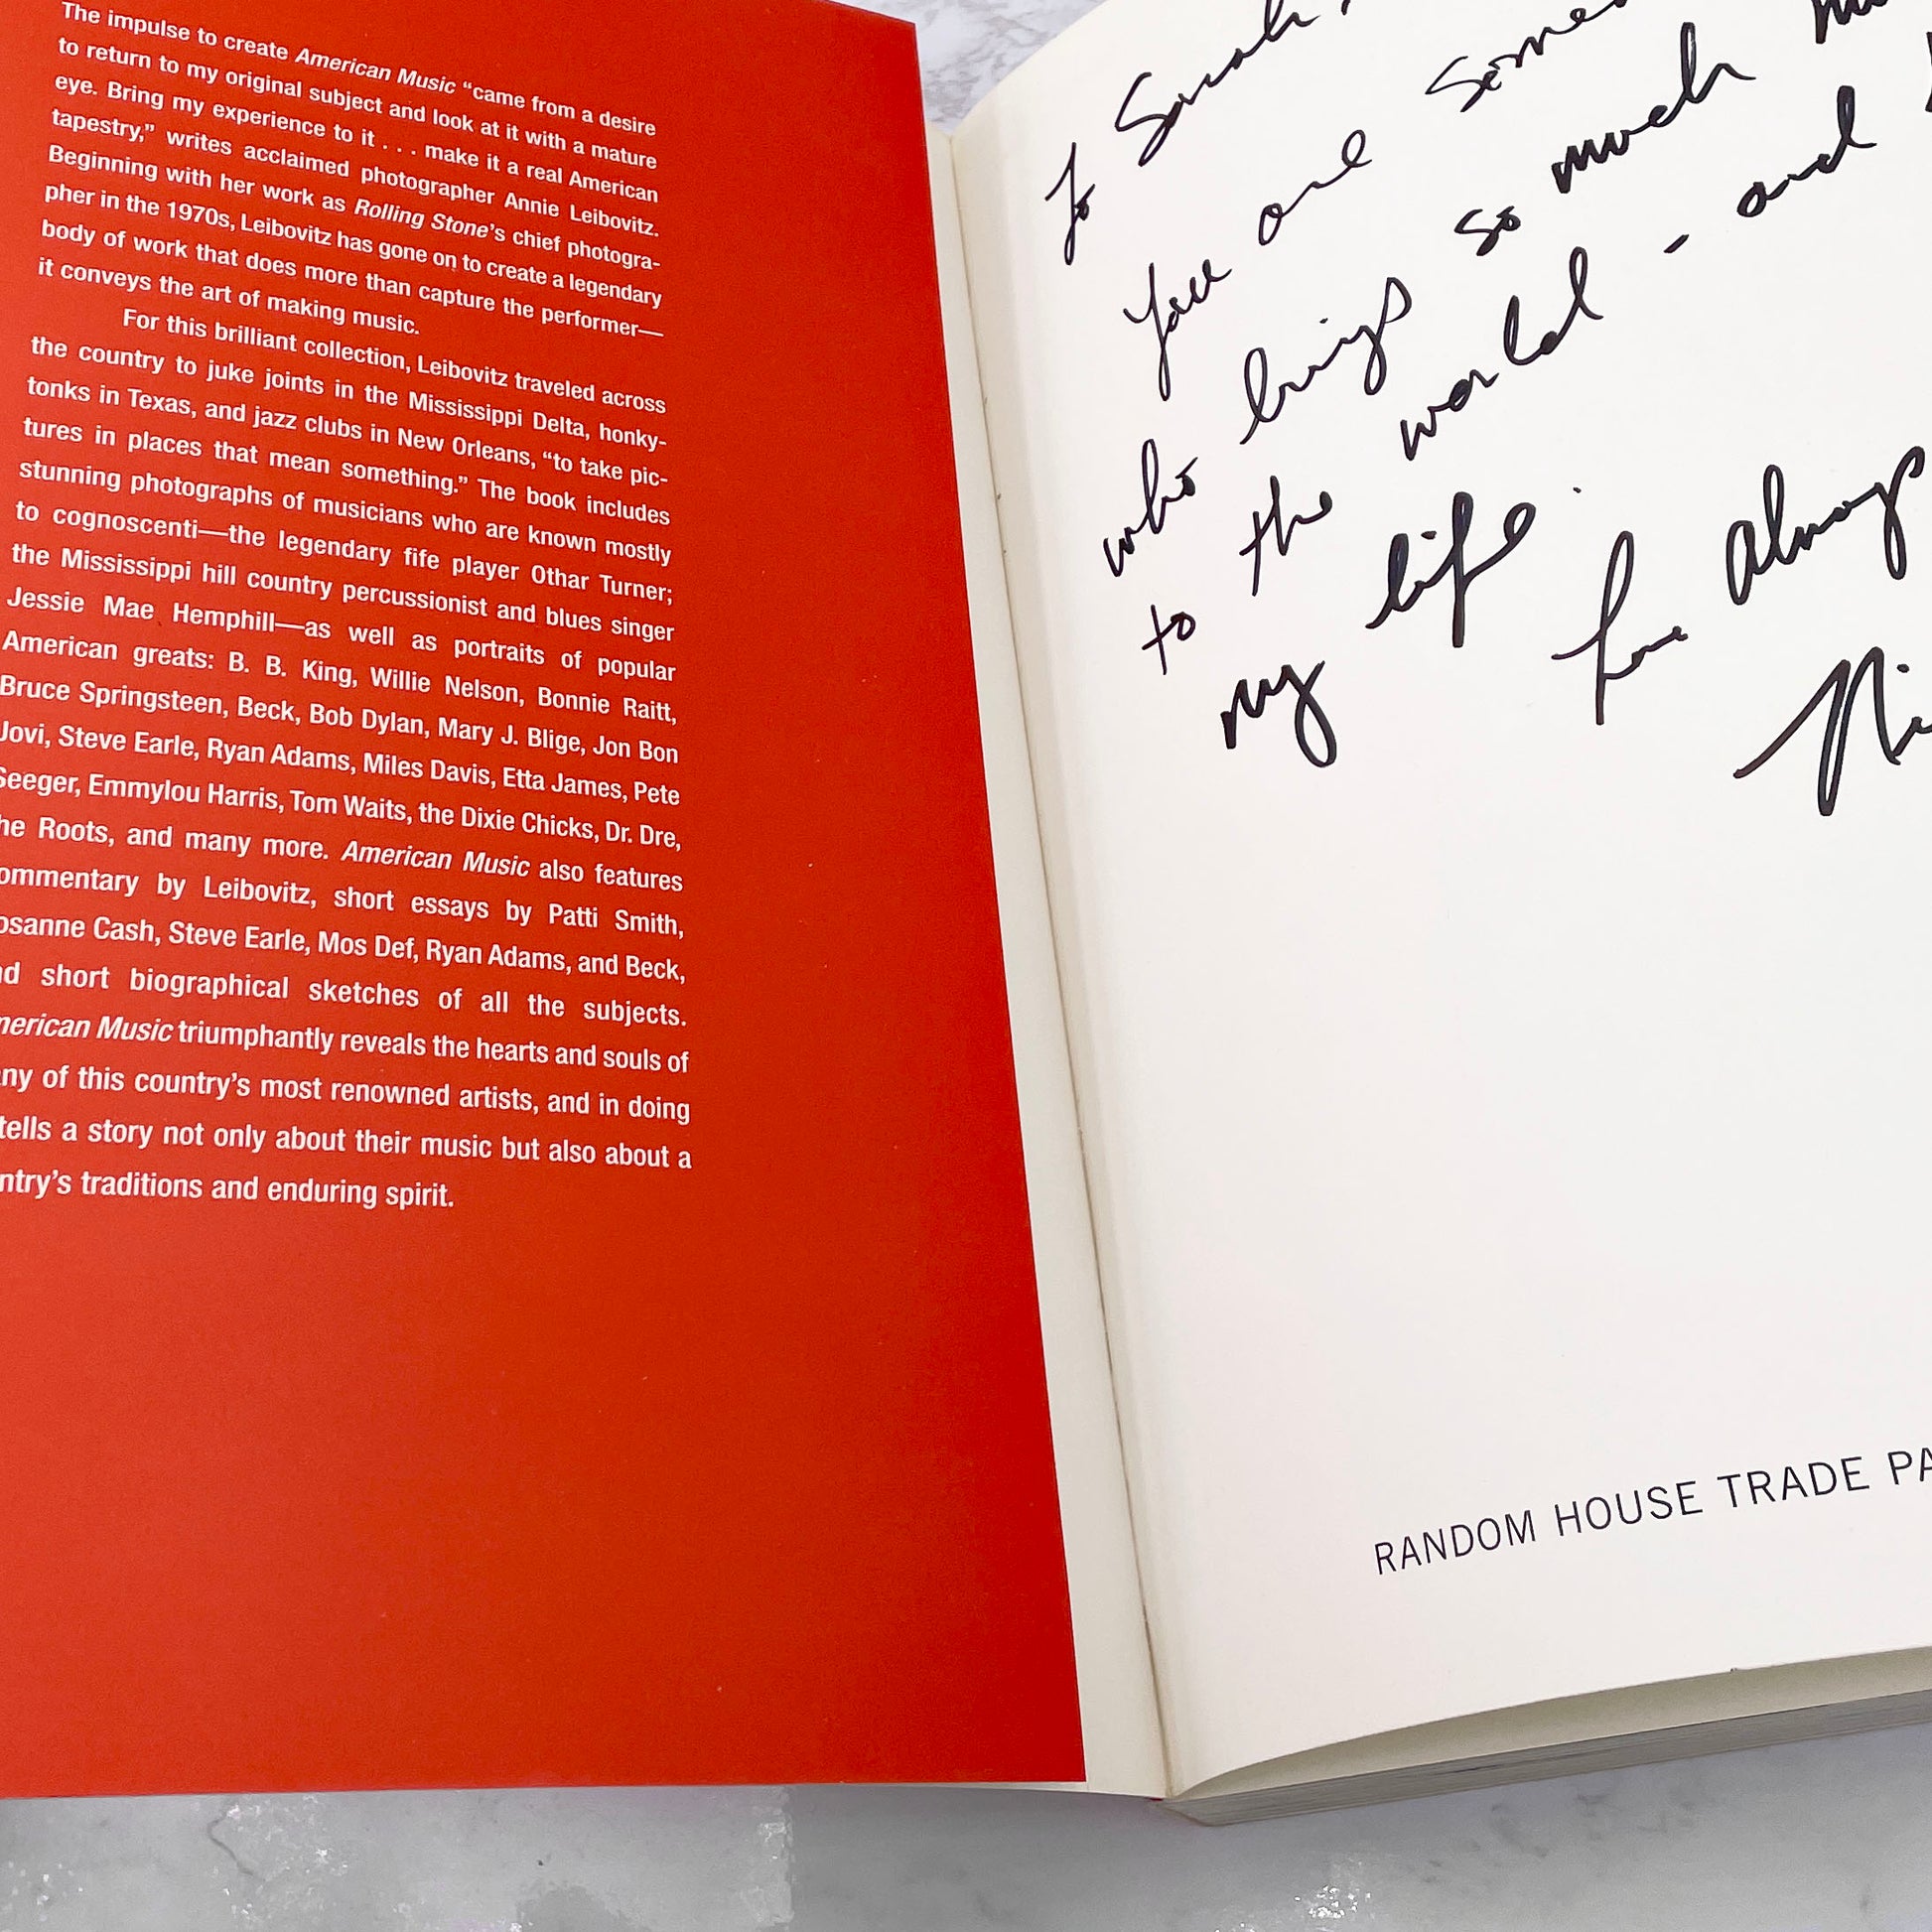 The impulse to create American Music “came from a desire
to return to my original subject and look at it with a mature
eye. Bring my experience to it . . . make it a real American
tapestry,” writes acclaimed photographer Annie Leibovitz.
Beginning with her work as Rolling Stone’s chief photogra-
pher in the 1970s, Leibovitz has gone on to create a legendary
body of work that does more than capture the performer—
it conveys the art of making music.
For this brilliant collection, Leibovitz traveled across
the country to juke joints in the Mississippi Delta, honky-
tonks in Texas, and jazz clubs in New Orleans, “to take pic-
tures in places that mean something.” The book includes
stunning photographs of musicians who are known mostly
to cognoscenti—the legendary fife player Othar Turner;
the Mississippi hill country percussionist and blues singer
Jessie Mae Hemphill—as well as portraits of popular
American greats: B. B. King, Willie Nelson, Bonnie Raitt,
Bruce Springsteen, Beck, Bob Dylan, Mary J. Blige, Jon Bon
Jovi, Steve Earle, Ryan Adams, Miles Davis, Etta James, Pete
Seeger, Emmylou Harris, Tom Waits, the Dixie Chicks, Dr. Dre,
he Roots, and many more. American Music also features
ommentary by Leibovitz, short essays by Patti Smith,
osanne Cash, Steve Earle, Mos Def, Ryan Adams, and Beck,
nd short biographical sketches of all the subjects.
merican Music triumphantly reveals the hearts and souls of
ny of this country’s most renowned artists, and in doing
tells a story not only about their music but also about a
ntry’s traditions and enduring spirit.
To Sarah,
You are Some
who brings so much
to the world - and
my life.
Love Always
Ni
RANDOM HOUSE TRADE PA